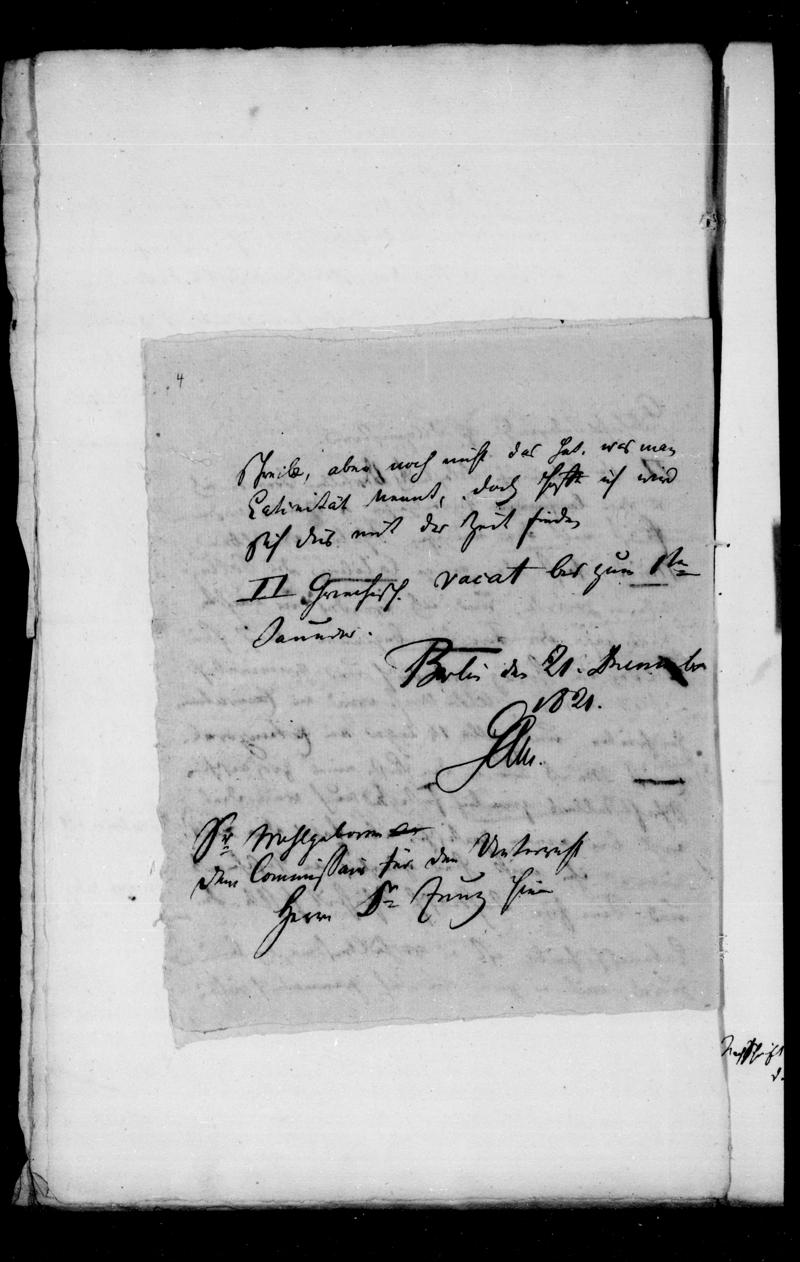 4
schreibe, aber noch nicht das hat, was man
Latinität nennt, doch hoffe ich wird
sich dies mit der Zeit finden
II Griechisch. vacat bis zum 1ten
Januar.
Berlin den 21. December
1821.
Sr Wohlgeboren
dem Commissair für den Unterricht
Herrn Dr Zunz hier